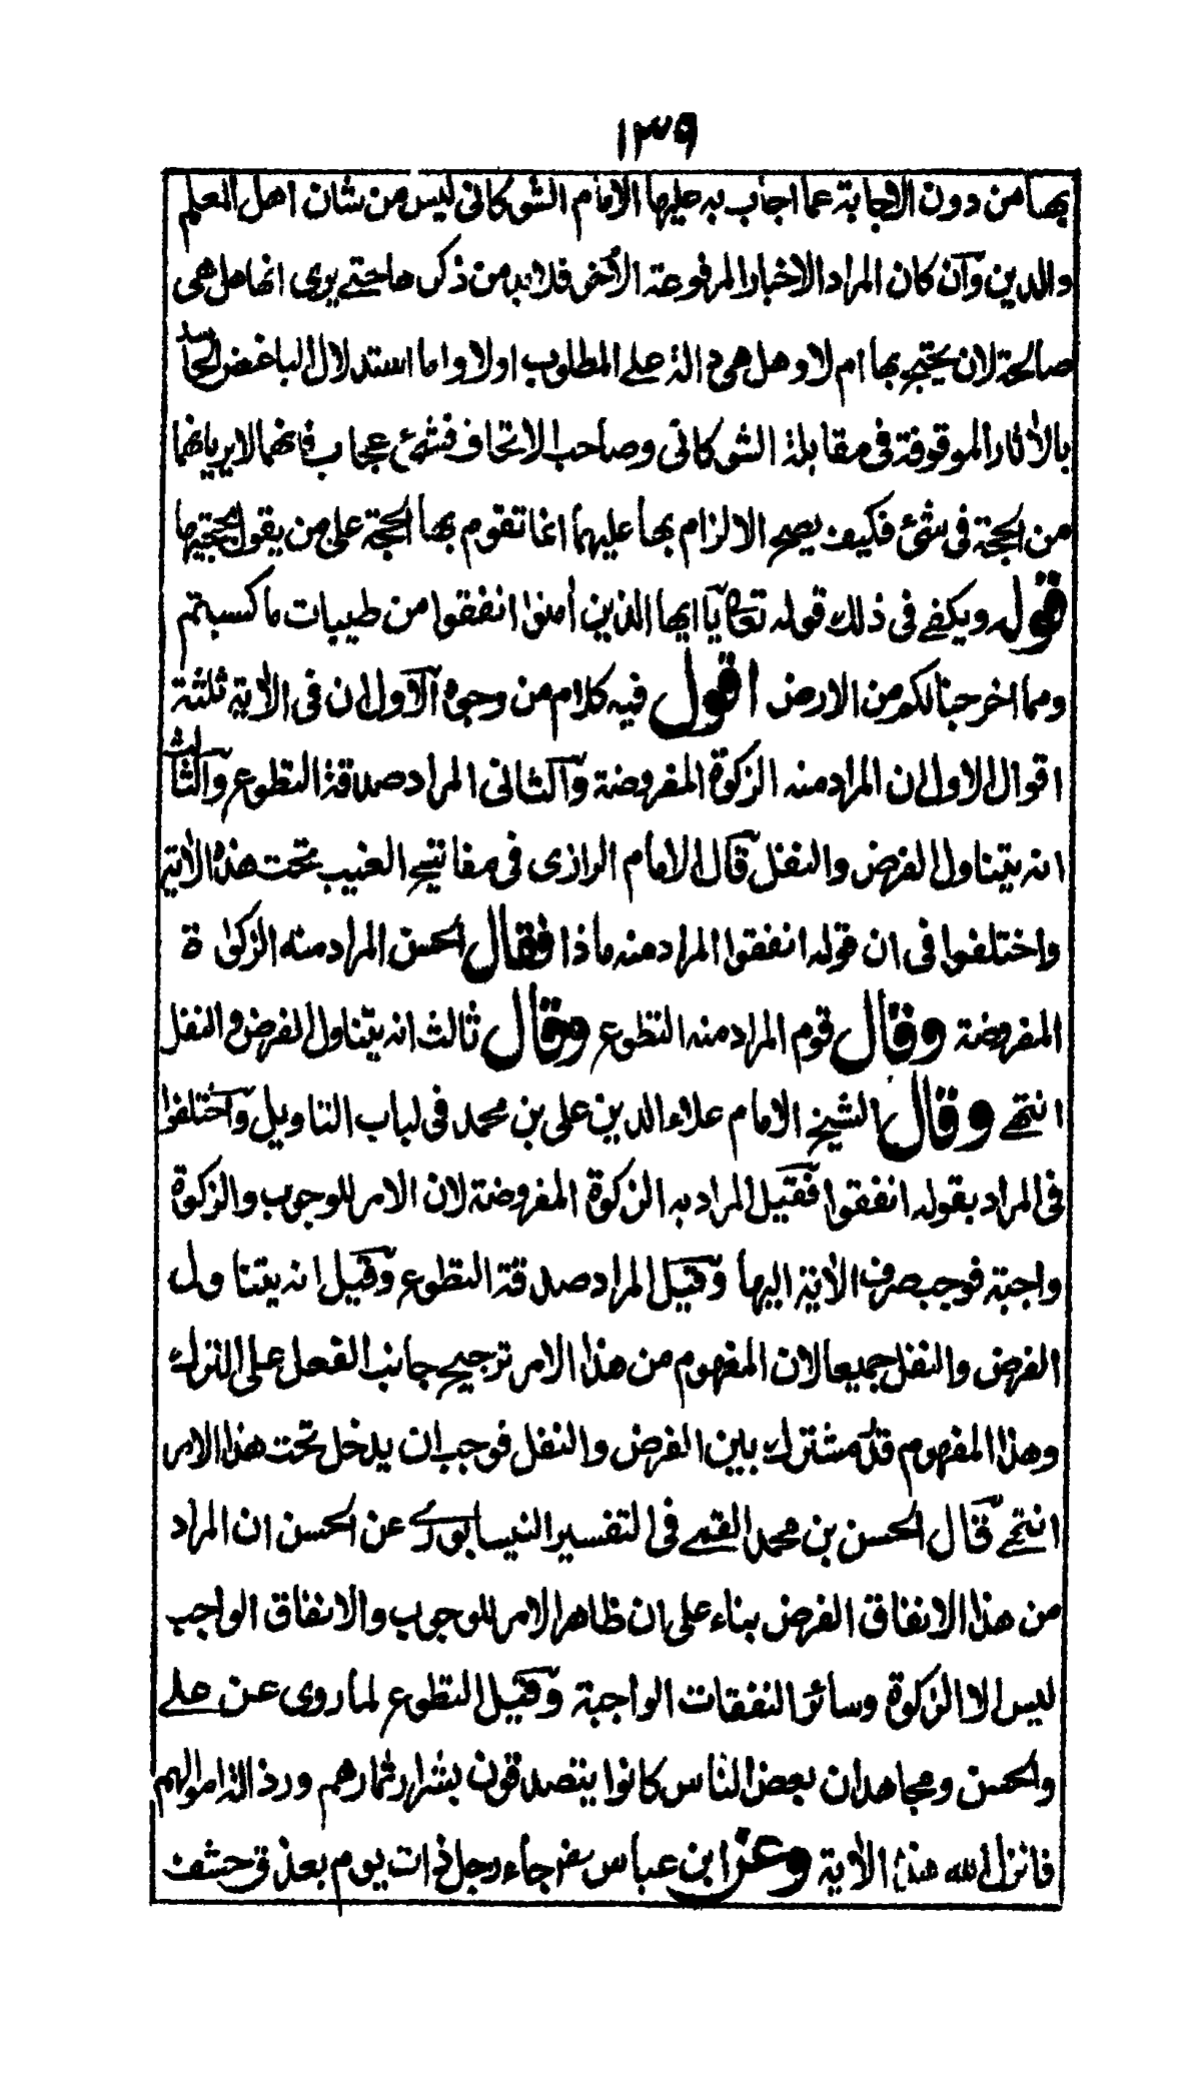 ١٣٩
بها من دون الاجابة عما اجاب به عليها الامام الشوكانى ليس من شان اهل العلم
والدين وآن كان المراد الاخبار المرفوعة الأخر فلابد من ذكرها حتے يرى انها هل هى
صالحة لان يحتج بها ام لا وهل هى دالة علے المطلوب اولا واما استدلال الباغض الحاسد
بالأثار الموقوفة فى مقابلة الشوكانى وصاحب الاتحاف فشئ عجاب فانهما لا يريانها
من الحجة فى شئ فكيف يصح الالزام بها عليهما انما تقوم بها الحجة على من يقول بحجيتها
قوله ويكفے فى ذلك قوله تعالى يآ ايها الذين أمنوا انفقوا من طيبات ما كسبتم
ومما اخرجنا لكم من الارض اقول فيه كلام من وجوه الآول ان فى الأية ثلثة
اقوال الاول ان المراد منه الزكوة المفروضة وآلثانى المراد صدقة التطوع وآلثالث
انه يتناول الفرض والنفل قآل الامام الرازى فى مفاتيح الغيب تحت هذه الأية
واختلفوا فى ان قوله انفقوا المراد منه ماذا فقال الحسن المراد منه الزكوٰة
المفروضة وقال قوم المراد منه التطوع وقال ثالث انه يتناول الفرض والنفل
انتهے وقال الشيخ الامام علاء الدين على بن محمد فى لباب التاويل وآختلفوا
فى المراد بقوله انفقوا فقيل المراد به الزكوة المفروضة لان الامر للوجوب والزكوة
واجبة فوجب صرف الأية اليها وقيل المراد صدقة التطوع وقيل انه يتناول
الفرض والنفل جميعا لان المفهوم من هذا الامر ترجيح جانب الفعل على الترك
وهذا المفهوم قدر مشترك بين الفرض والنفل فوجب ان يدخل تحت هذا الامر
انتهے قآل الحسن بن محمد القمے فى التفسير النيسابورے عن الحسن ان المراد
من هذا الانفاق الفرض بناء على ان ظاهر الامر للوجوب والانفاق الواجب
ليس الا الزكوة وسائر النفقات الواجبة وقيل التطوع لما روى عن علے
والحسن ومجاهد ان بعض الناس كانوا يتصدقون بشرار ثمارهم ورذالة اموالهم
فانزل الله هذه الأية وعن ابن عباس جاء رجل ذات يوم بعذق حشف